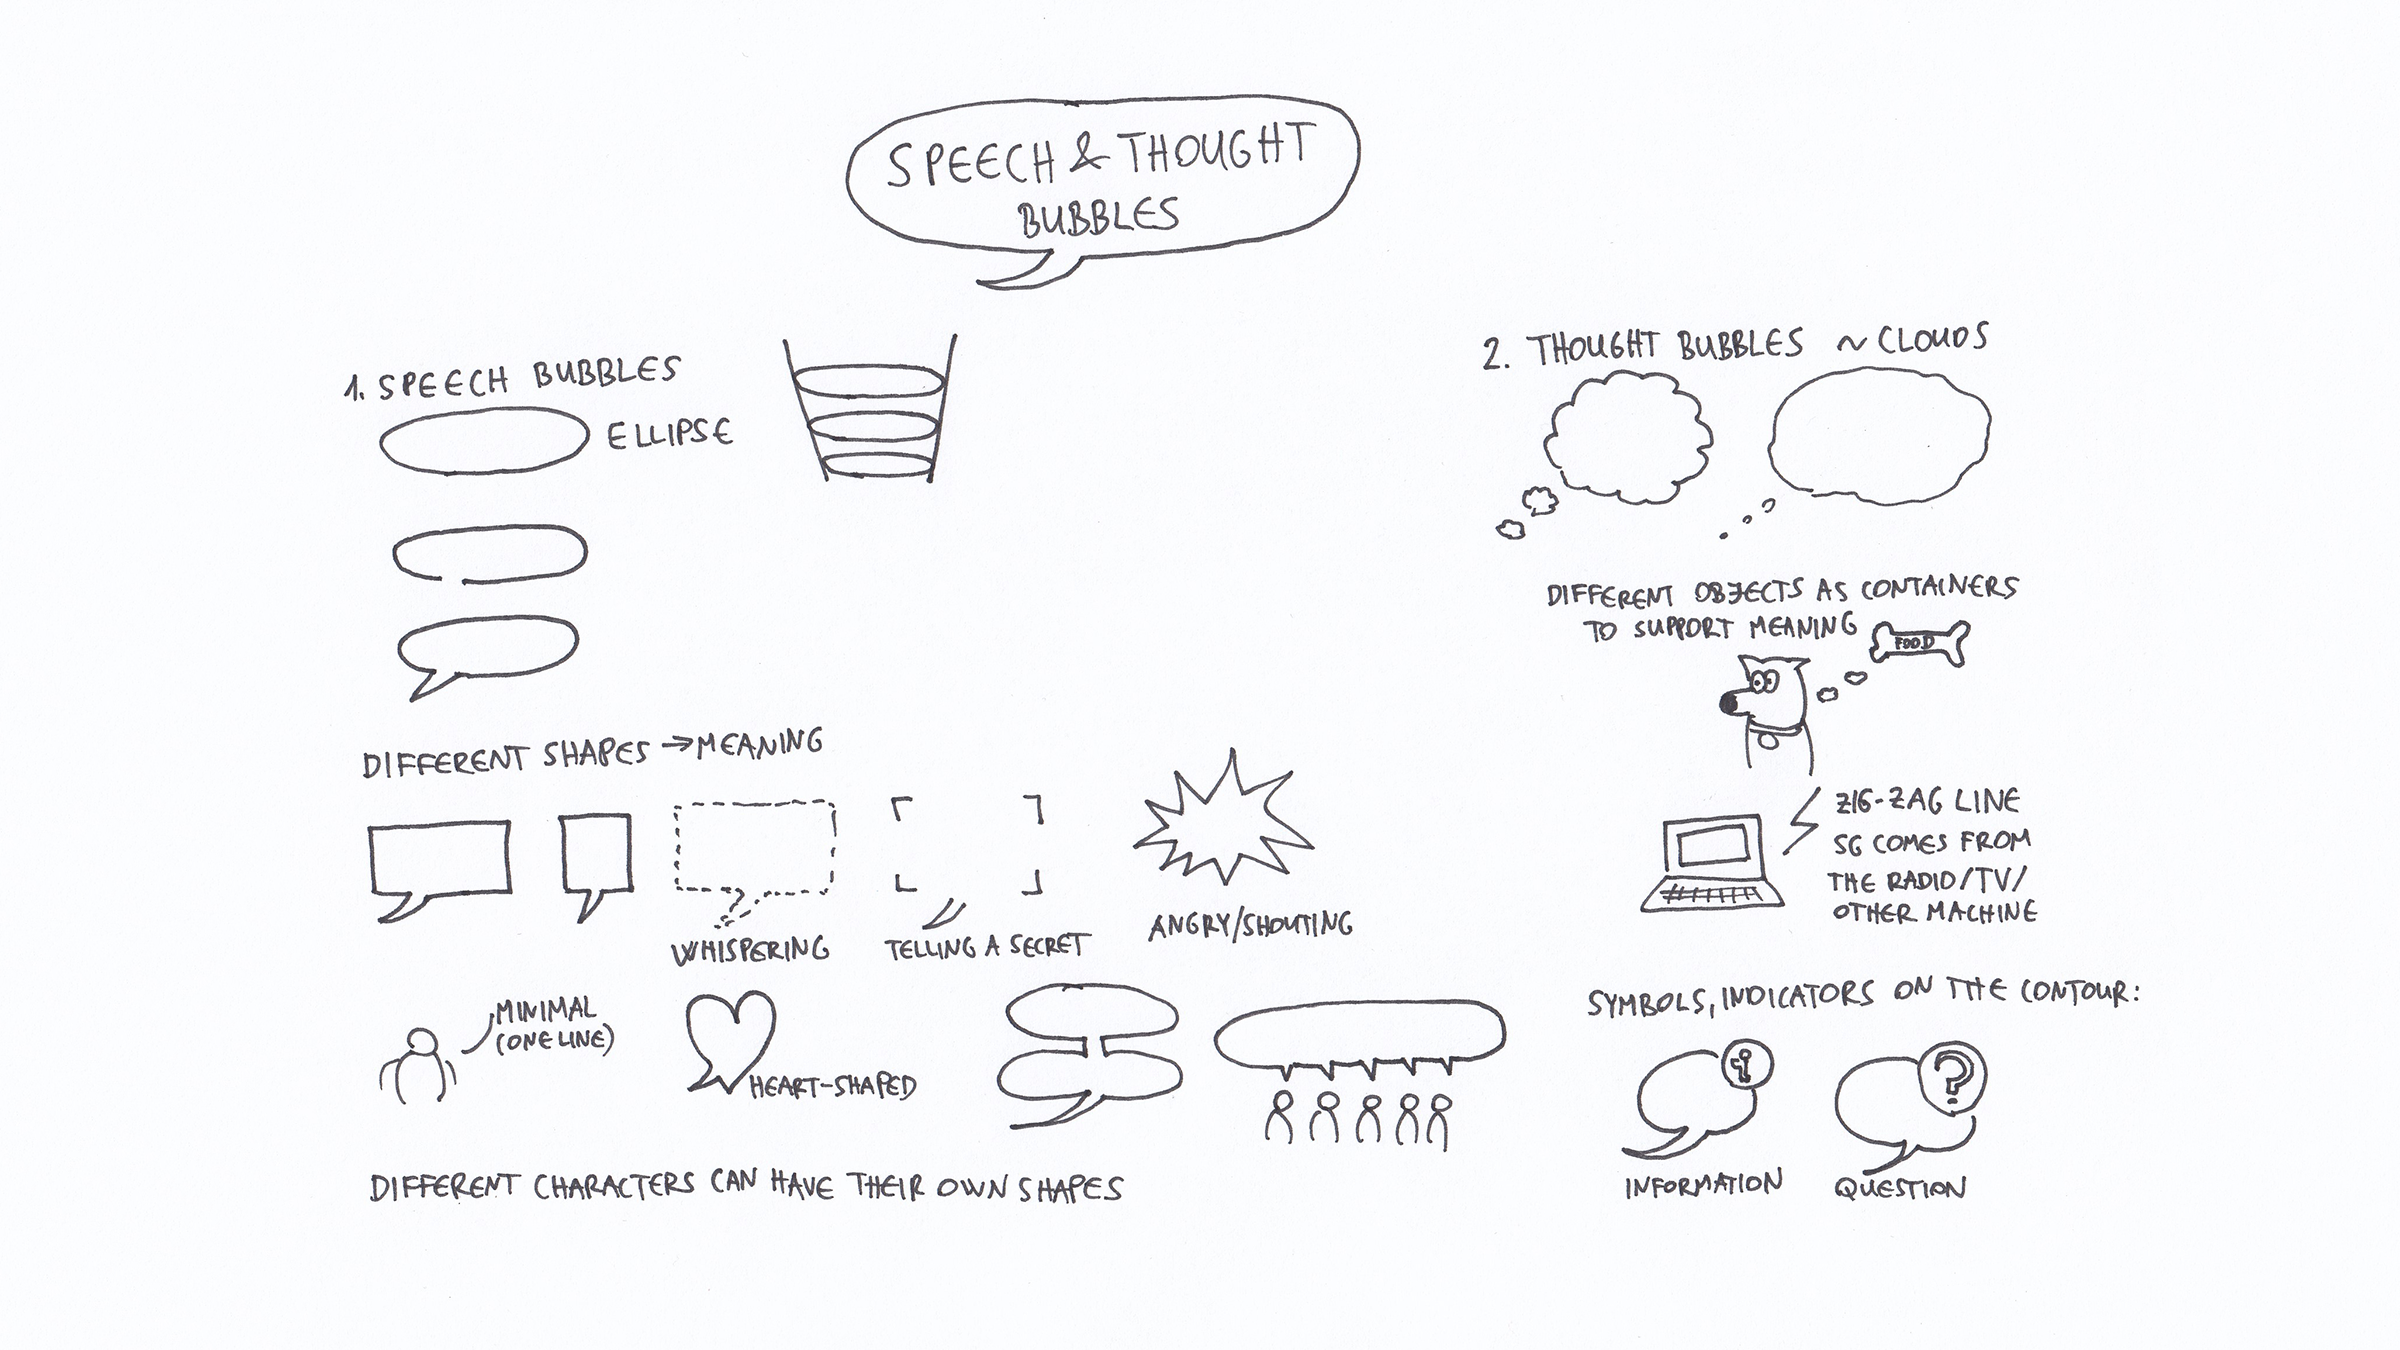 SPEECH & THOUGHT
BUBBLES
1. SPEECH BUBBLES
ELLIPSE
DIFFERENT SHAPES → MEANING
WHISPERING
TELLING A SECRET
ANGRY/SHOUTING
MINIMAL
(ONE LINE)
HEART-SHAPED
DIFFERENT CHARACTERS CAN HAVE THEIR OWN SHAPES
2. THOUGHT BUBBLES ~ CLOUDS
DIFFERENT OBJECTS AS CONTAINERS
TO SUPPORT MEANING
FOOD
ZIG-ZAG LINE
SG COMES FROM
THE RADIO/TV/
OTHER MACHINE
SYMBOLS, INDICATORS ON THE CONTOUR:
i
?
INFORMATION
QUESTION